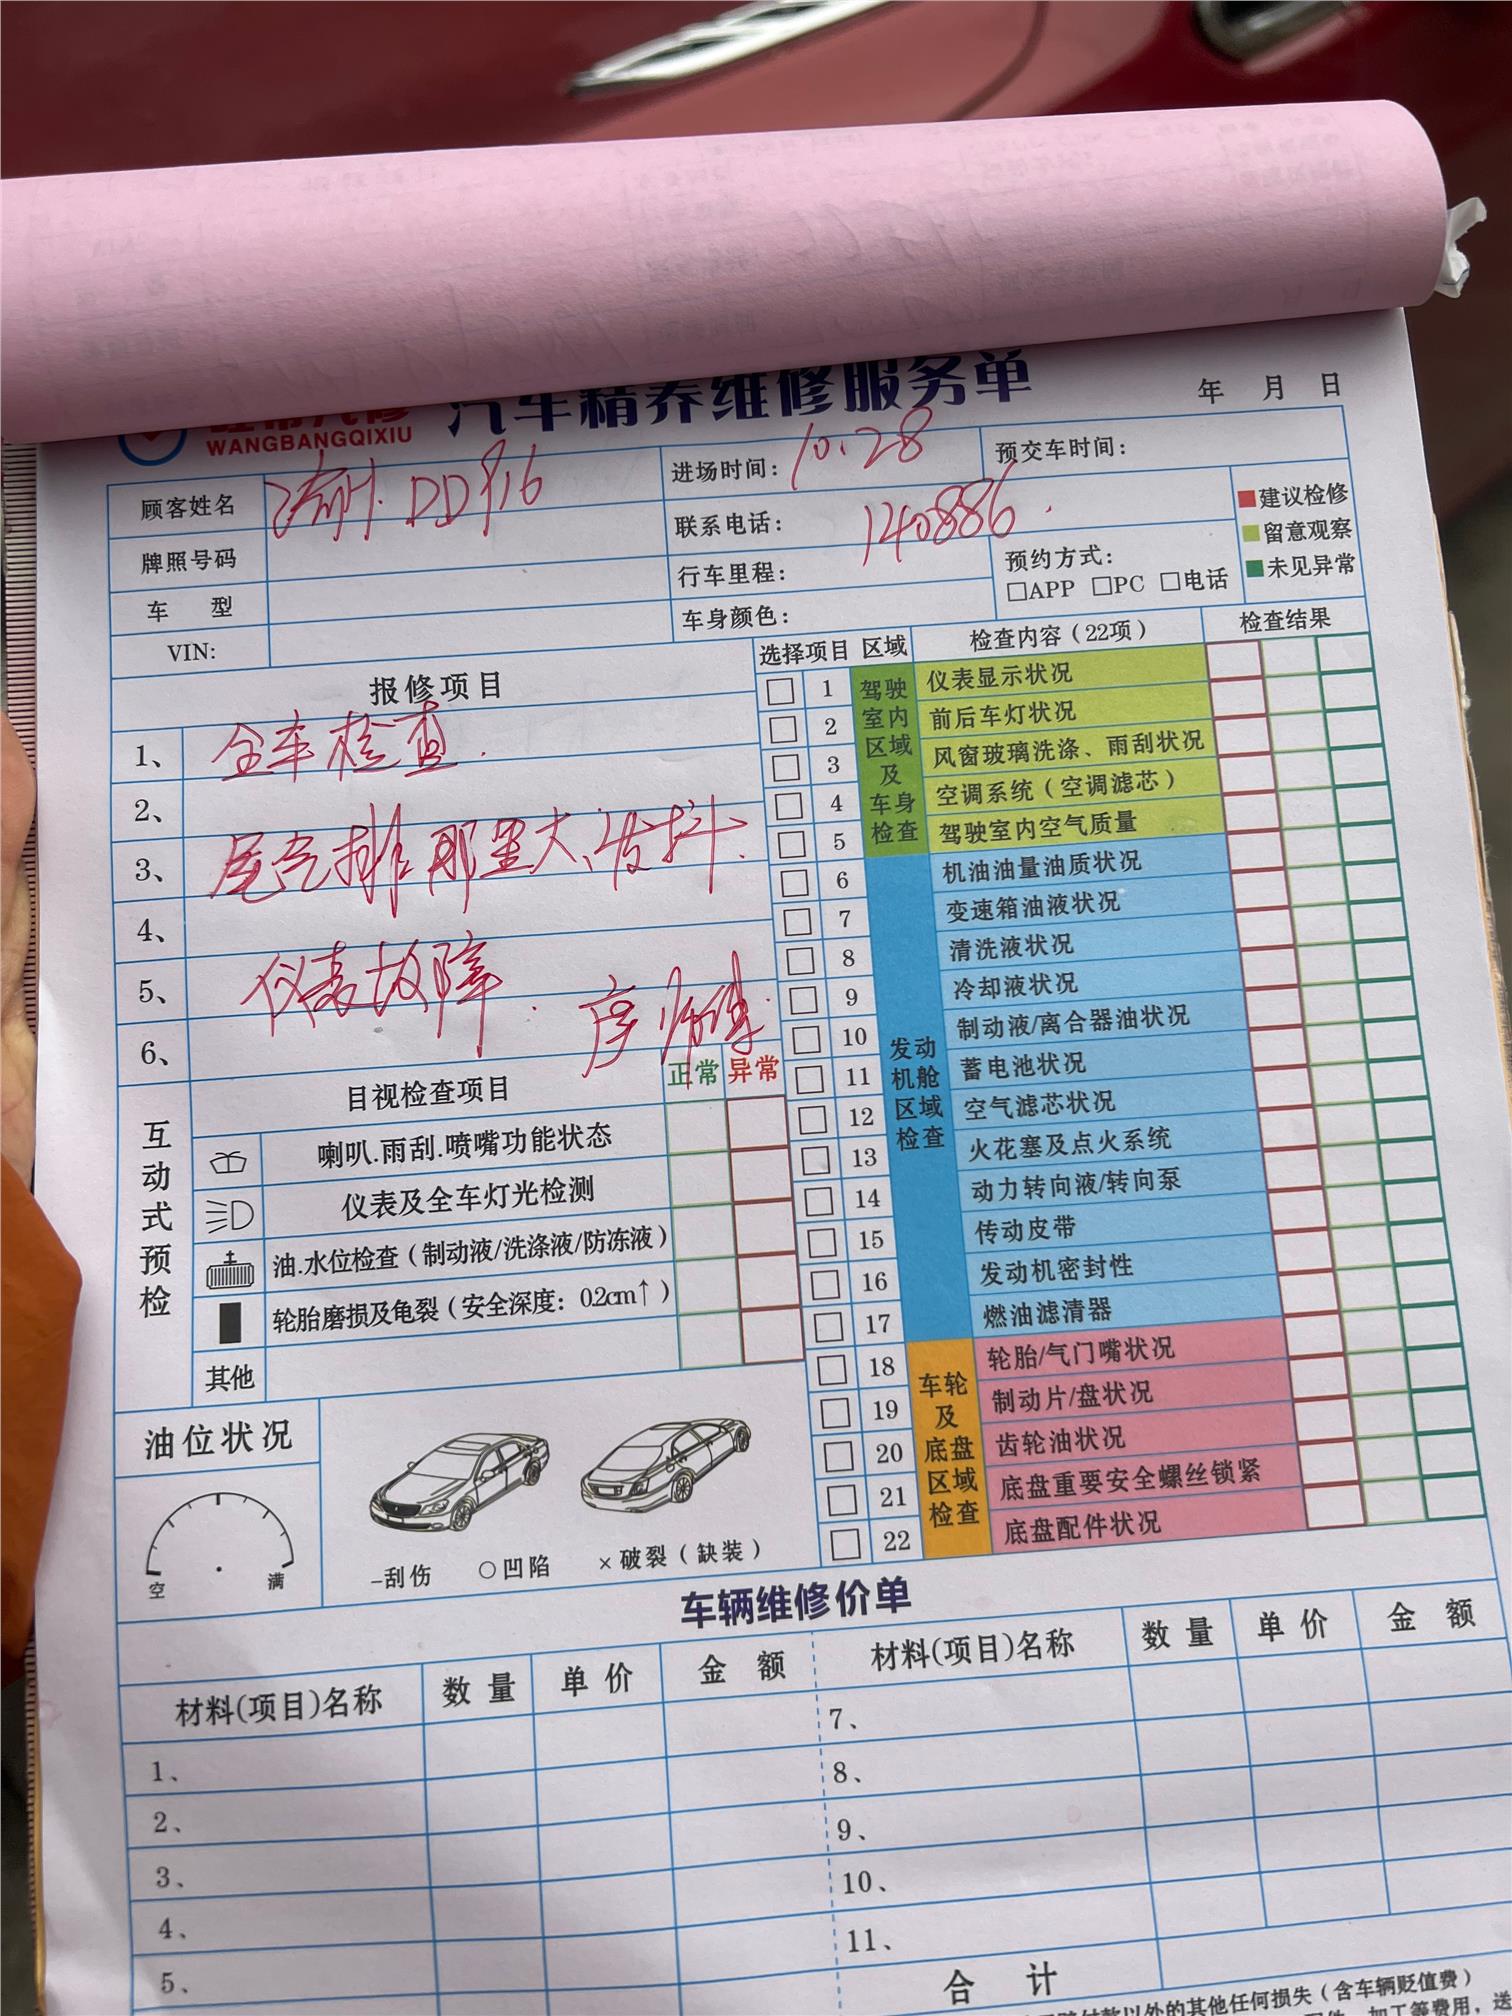 汽车精养维修服务单
WANGBANGQIXIU
年 月 日
顾客姓名
DD916
进场时间: 10.28
预交车时间:
牌照号码
联系电话:
140886
车 型
行车里程:
预约方式:
□APP □PC □电话
VIN:
车身颜色:
建议检修
留意观察
未见异常
报修项目
1、 全车检查.
2、
3、 尾气排那里大、发抖.
4、
5、 仪表故障. 师傅.
6、
选择项目 区域 检查内容(22项) 检查结果
驾驶室内区域及车身检查
1 仪表显示状况
2 前后车灯状况
3 风窗玻璃洗涤、雨刮状况
4 空调系统(空调滤芯)
5 驾驶室内空气质量
发动机舱区域检查
6 机油油量油质状况
7 变速箱油液状况
8 清洗液状况
9 冷却液状况
10 制动液/离合器油状况
11 蓄电池状况
12 空气滤芯状况
13 火花塞及点火系统
14 动力转向液/转向泵
15 传动皮带
16 发动机密封性
17 燃油滤清器
车轮及底盘区域检查
18 轮胎/气门嘴状况
19 制动片/盘状况
20 齿轮油状况
21 底盘重要安全螺丝锁紧
22 底盘配件状况
互动式预检
目视检查项目 正常 异常
喇叭.雨刮.喷嘴功能状态
仪表及全车灯光检测
油.水位检查(制动液/洗涤液/防冻液)
轮胎磨损及龟裂(安全深度: 0.2cm↑)
其他
油位状况
空 满
-刮伤 ○凹陷 ×破裂(缺装)
车辆维修价单
材料(项目)名称 数 量 单 价 金 额 材料(项目)名称 数 量 单 价 金 额
1、 7、
2、 8、
3、 9、
4、 10、
5、 11、
合 计
付款以外的其他任何损失(含车辆贬值费)
加工等费用,送